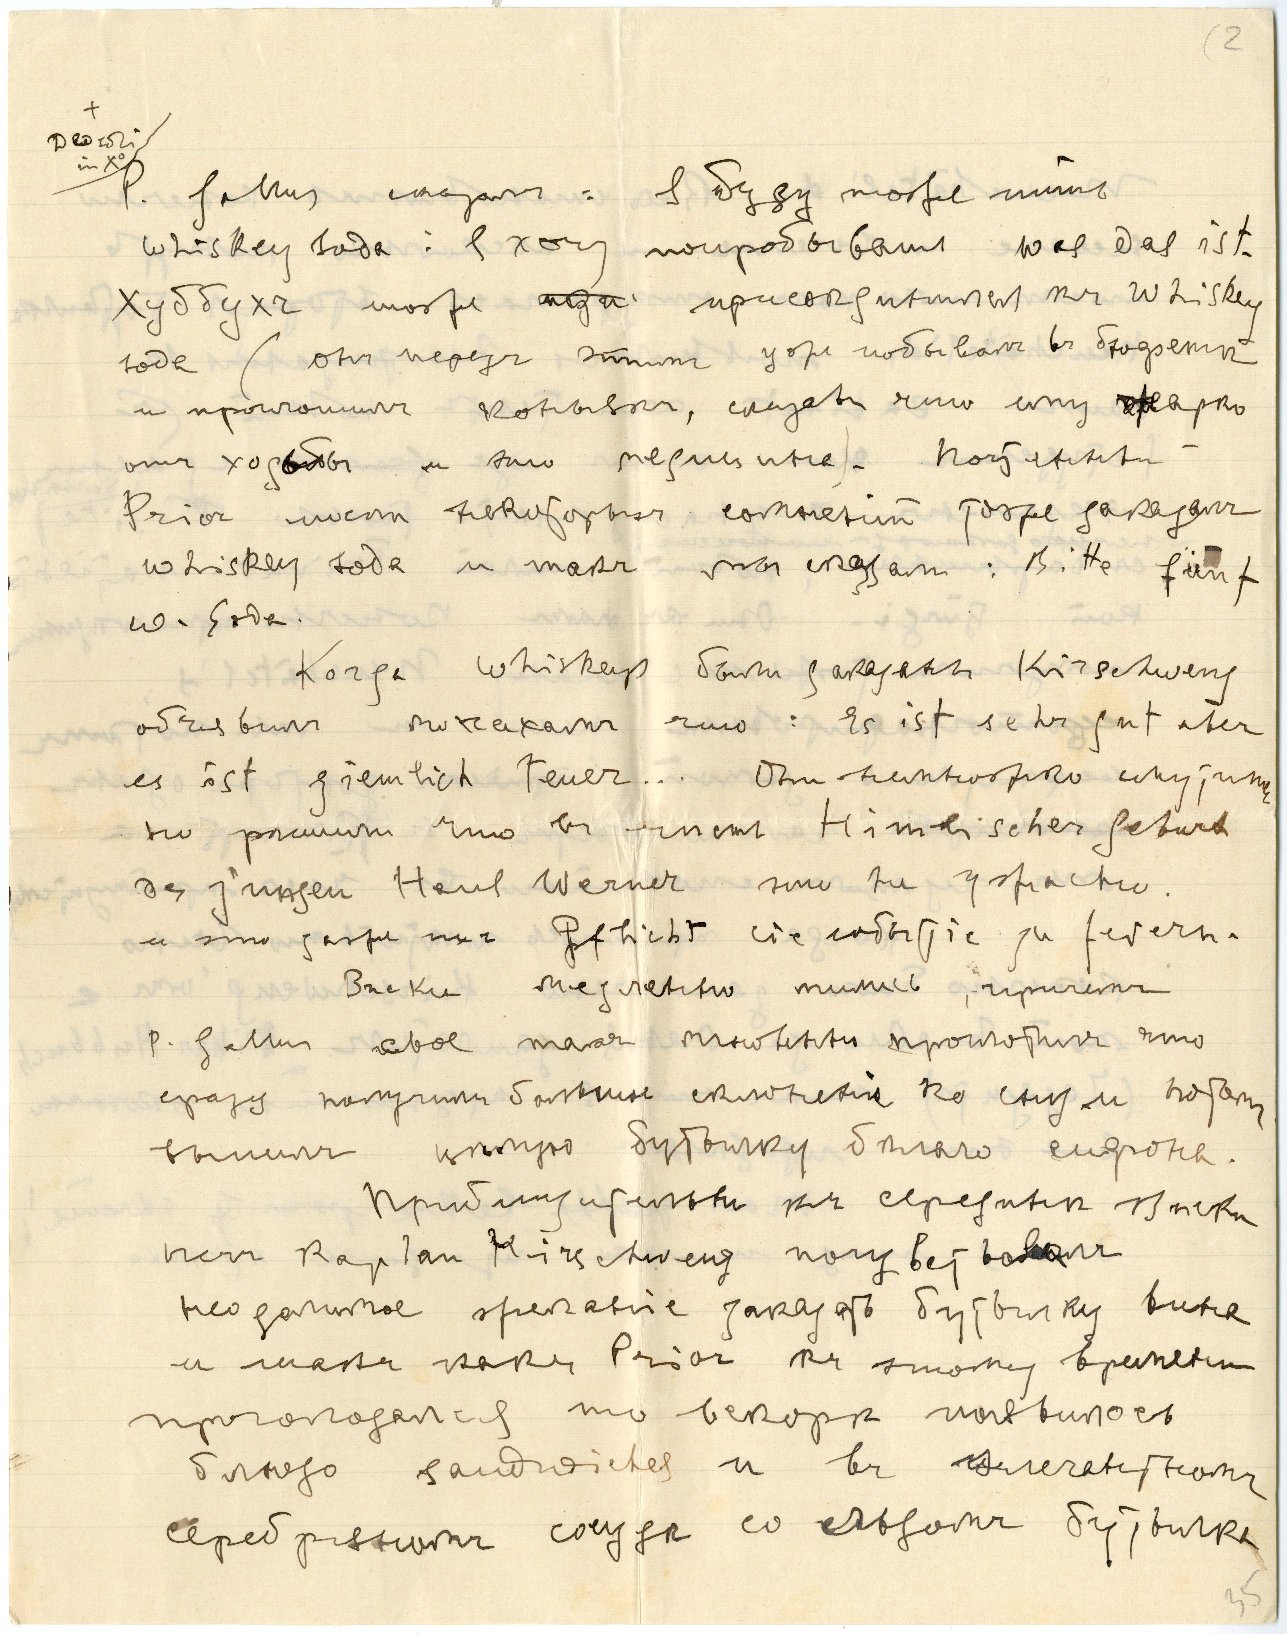 (2
+
in Xo
P. Gallus сказалъ : я буду тоже пить
whiskey soda : я хочу попробывать was das ist.
Худбухъ тоже присоединился къ whiskey
soda (онъ передъ этимъ уже побывалъ въ буфетѣ
и проглотилъ коньякъ, сказавъ что ему жарко
отъ ходьбы и это медицина). Почтенный
Prior послѣ некоторыхъ сомнений тоже заказалъ
whiskey soda и такъ мы сказали : Bitte fünf
w. soda.
Когда whiskey были заказаны Kirschweng
объявилъ что : Es ist sehr gut aber
es ist ziemlich Feuer... Отъ немножко смутились
но решили что въ честь Himmlischer Geburt
des jungen Paul Werner это не ужасно.
и это даже их Pflicht сіе событіе zu feiern.
Виски медленно пились, причемъ
P. Gallus свое такъ мгновенно проглотилъ что
сразу получилъ большие склоненіе ко сну и потомъ
выпилъ цѣлую бутылку бѣлаго сифона.
Приблизительно къ серединѣ виски
herr Kaplan Kirschweng почувствовалъ
неодолимое желаніе заказать бутылку вина
и такъ какъ Prior къ этому времени
проголодался то вскорѣ появилось
блюдо sandwiches и въ элегантномъ
серебряномъ сосудѣ со льдомъ бутылка